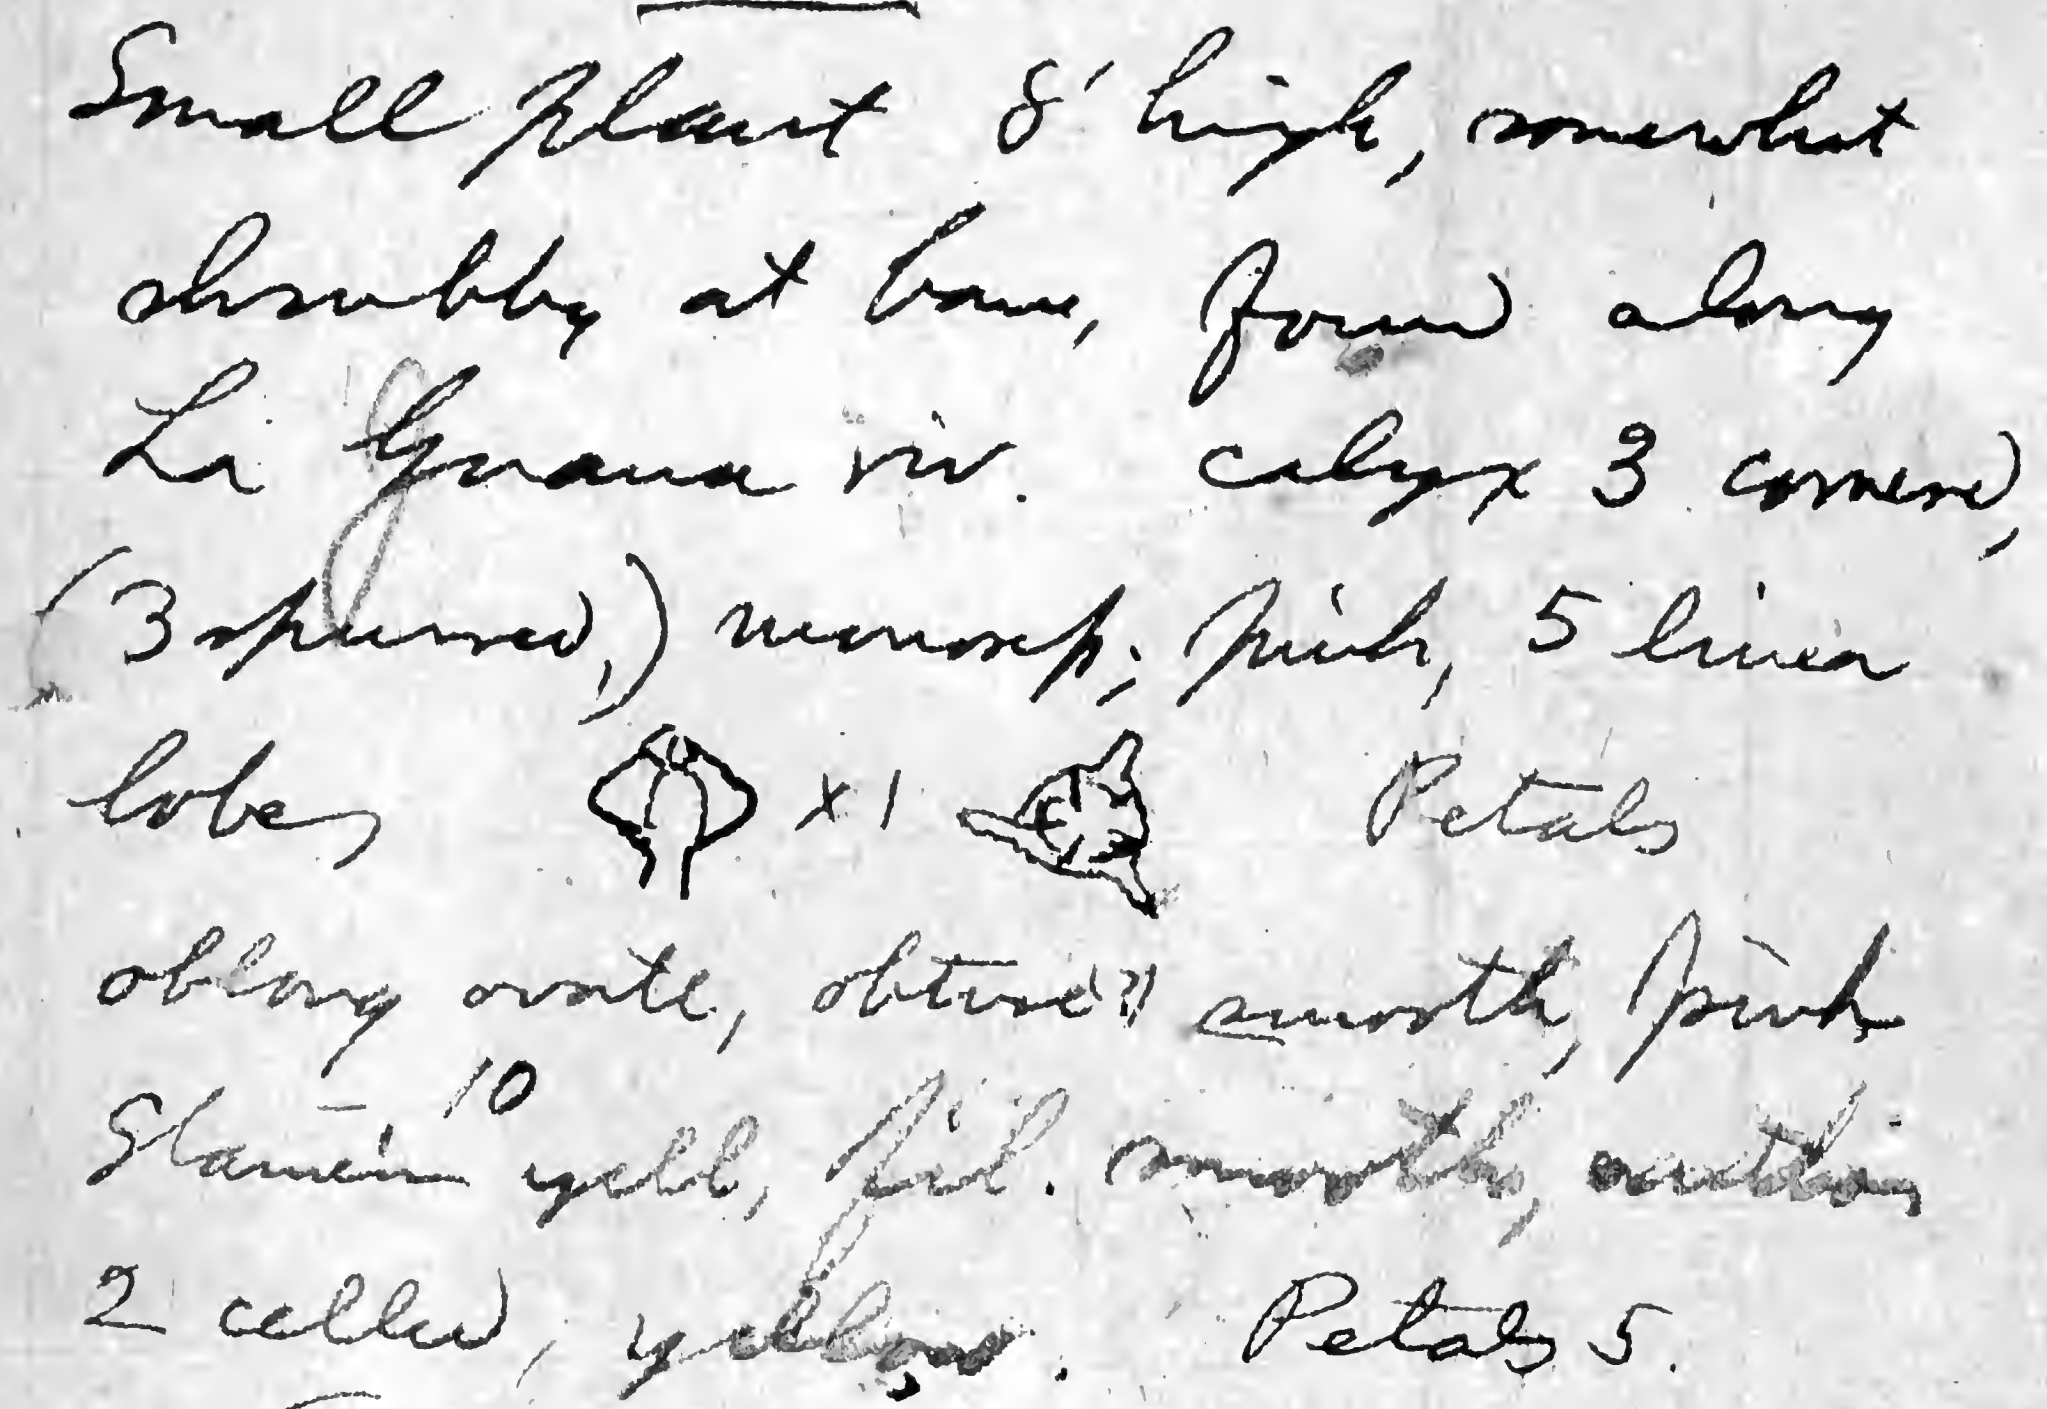 Small plant 8' high, somewhat
shrubby at base, found along
La Guana riv. calyx 3 cornered,
(3 spurred,) monosep; pink, 5 linear
lobes x 1 Petals
oblong ovate, obtuse?, smooth, pink
Stamein 10 yell, fil. smooth,
2 celled, yellow. Petals 5.